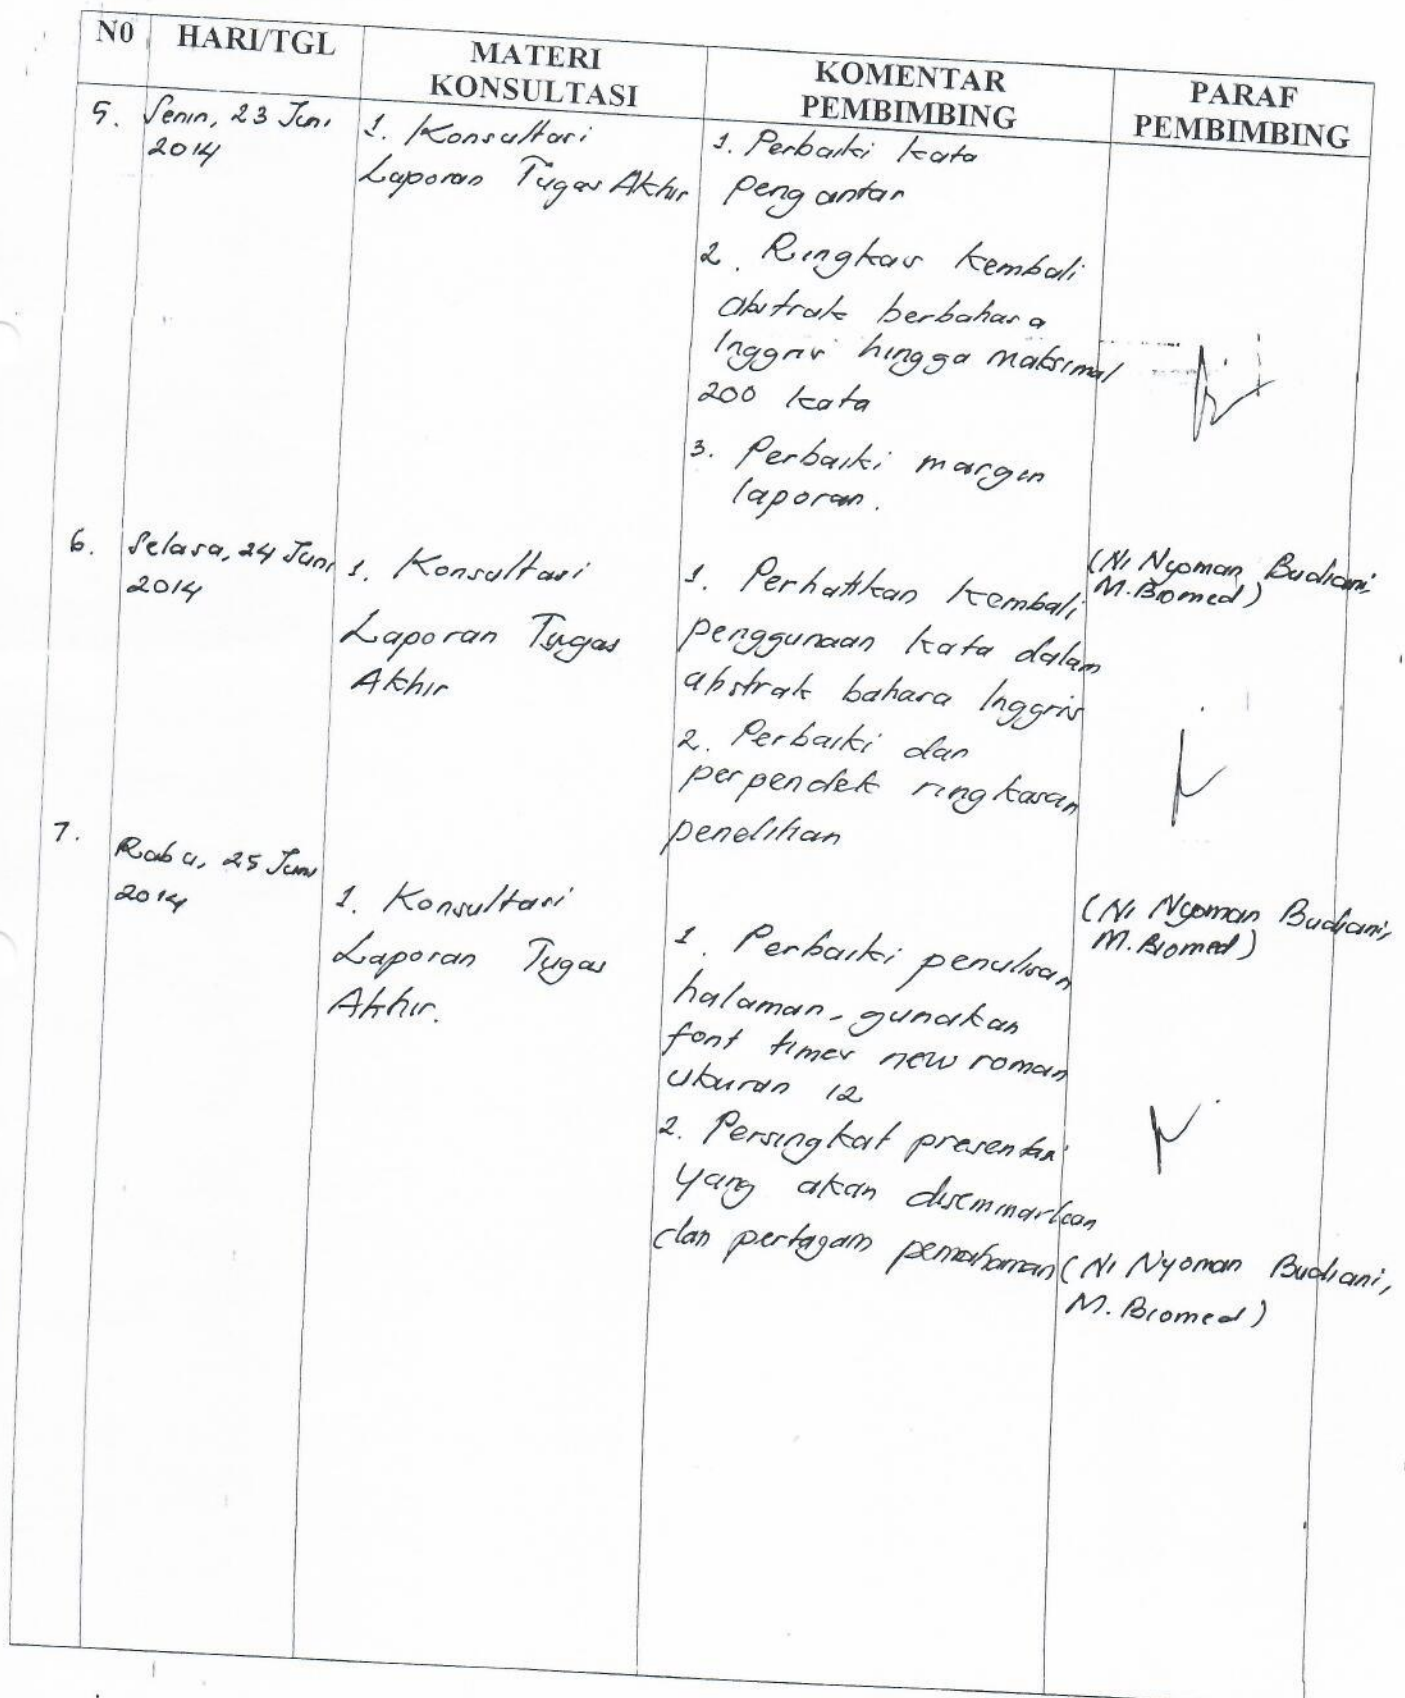 N0
HARI/TGL
MATERI
KONSULTASI
KOMENTAR
PEMBIMBING
PARAF
PEMBIMBING
5.
Senin, 23 Juni
2014
1. Konsultasi
Laporan Tugas Akhir
1. Perbaiki kata
pengantar
2. Ringkas kembali
abstrak berbahasa
Inggris hingga maksimal
200 kata
3. Perbaiki margin
laporan.
(Ni Nyoman Budiani,
M.Biomed)
6.
Selasa, 24 Juni
2014
1. Konsultasi
Laporan Tugas
Akhir
1. Perhatikan kembali
penggunaan kata dalam
abstrak bahasa Inggris
2. Perbaiki dan
perpendek ringkasan
penelitian
(Ni Nyoman Budiani,
M.Biomed)
7.
Rabu, 25 Juni
2014
1. Konsultasi
Laporan Tugas
Akhir.
1. Perbaiki penulisan
halaman, gunakan
font times new roman
ukuran 12
2. Persingkat presentasi
yang akan diseminarkan
dan pertajam pemahaman
(Ni Nyoman Budiani,
M. Biomed)